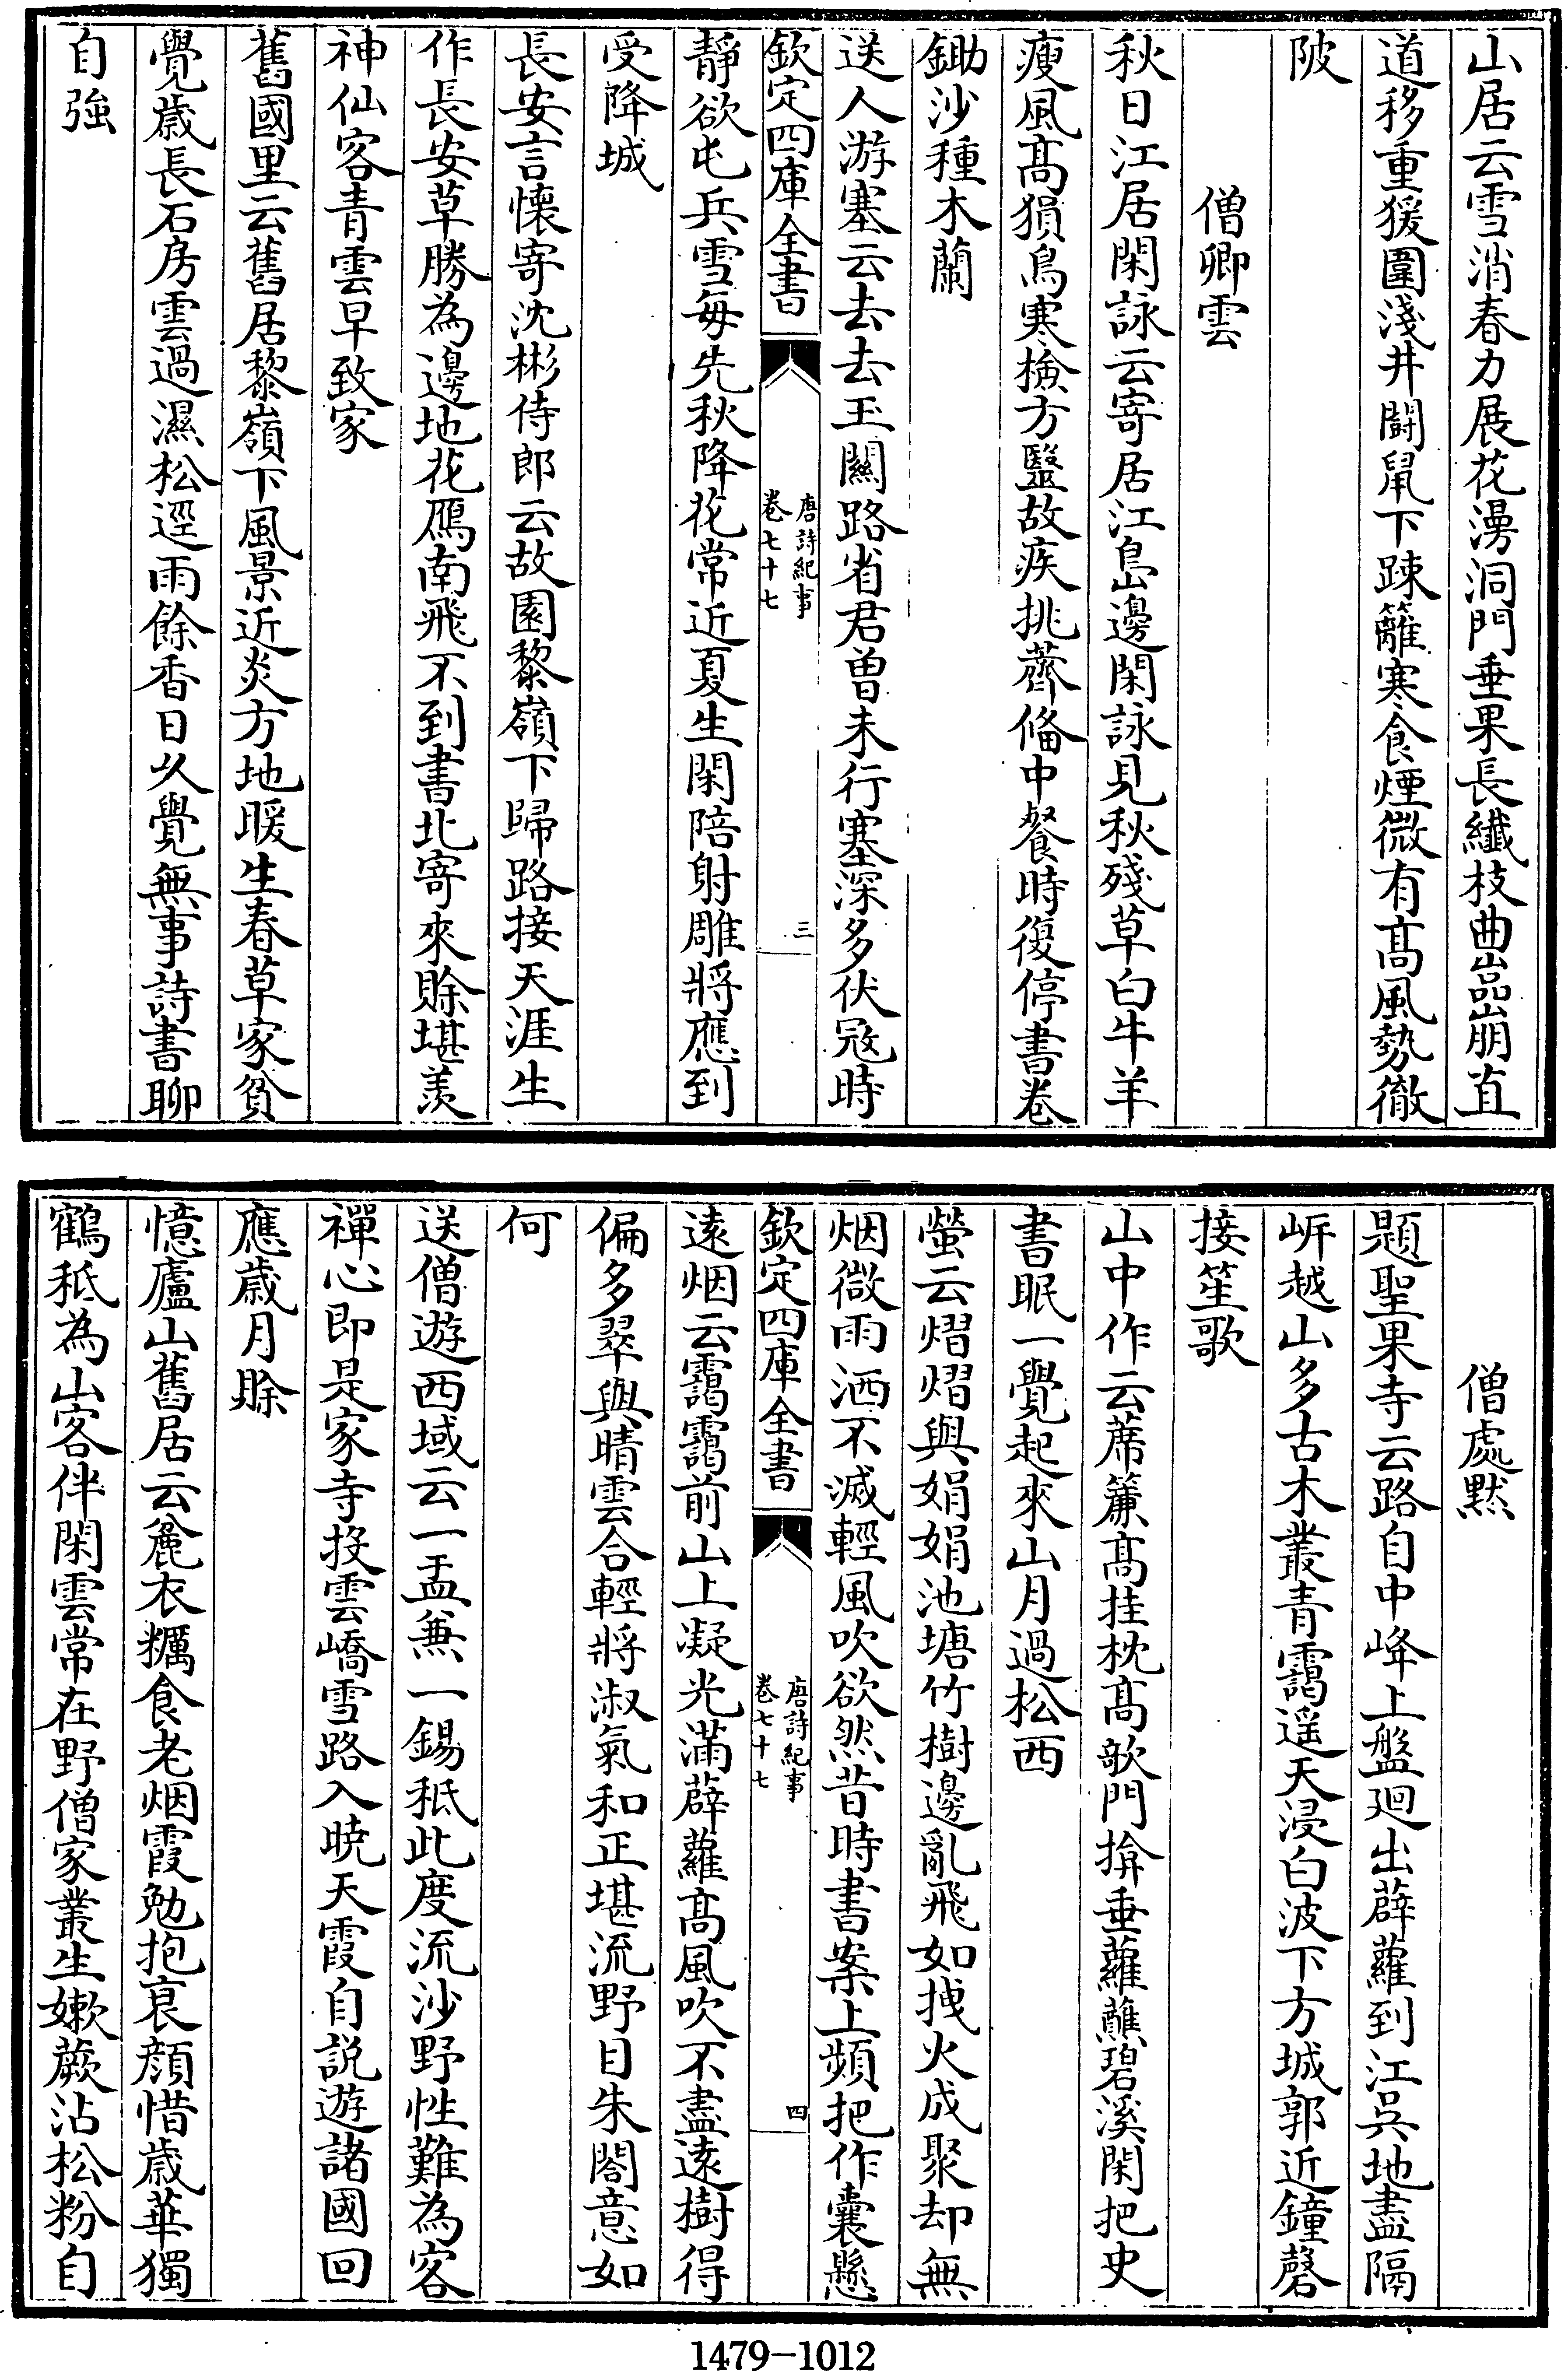 山居云雪消春力展花漫洞門垂果長纎枝曲嵓崩直
道移重猨圍淺井鬬鼠下踈籬寒食煙微有髙風勢徹
陂
僧卿雲
秋日江居閑詠云寄居江島邊閑詠見秋殘草白牛羊
瘦風髙猨鳥寒檢方醫故疾挑薺俻中餐時復停書卷
鋤沙種木蘭
送人游塞云去去玉關路省君曽未行塞深多伏冦時
欽定四庫全書
唐詩紀事
卷七十七
三
靜欲屯兵雪每先秋降花常近夏生閑陪射雕將應到
受降城
長安言懷寄沈彬侍郎云故園黎嶺下歸路接天涯生
作長安草勝為邊地花鴈南飛不到書北寄來賖堪羨
神仙客青雲早致家
舊國里云舊居黎嶺下風景近炎方地暖生春草家貧
覺歲長石房雲過濕松逕雨餘香日乆覺無事詩書聊
自強
僧處黙
題聖果寺云路自中峰上盤廻出薜蘿到江吳地盡隔
㟁越山多古木叢青靄遥天浸白波下方城郭近鐘磬
接笙歌
山中作云蓆簾髙挂枕髙欹門掩垂蘿蘸碧溪閑把史
書眠一覺起來山月過松西
螢云熠熠與娟娟池塘竹樹邊亂飛如拽火成聚却無
烟微雨洒不滅輕風吹欲然昔時書案上頻把作囊懸
欽定四庫全書
唐詩紀事
卷七十七
四
遠烟云靄靄前山上凝光滿薜蘿髙風吹不盡遠樹得
偏多翠與晴雲合輕將淑氣和正堪流野目朱閣意如
何
送僧遊西域云一盂兼一錫秪此度流沙野性難為客
禪心即是家寺投雲嶠雪路入曉天霞自説遊諸國回
應歲月賖
憶廬山舊居云麄衣糲食老烟霞勉抱衰顔惜歳華獨
鶴秪為山客伴閑雲常在野僧家叢生嫰蕨沾松粉自
1479—1012